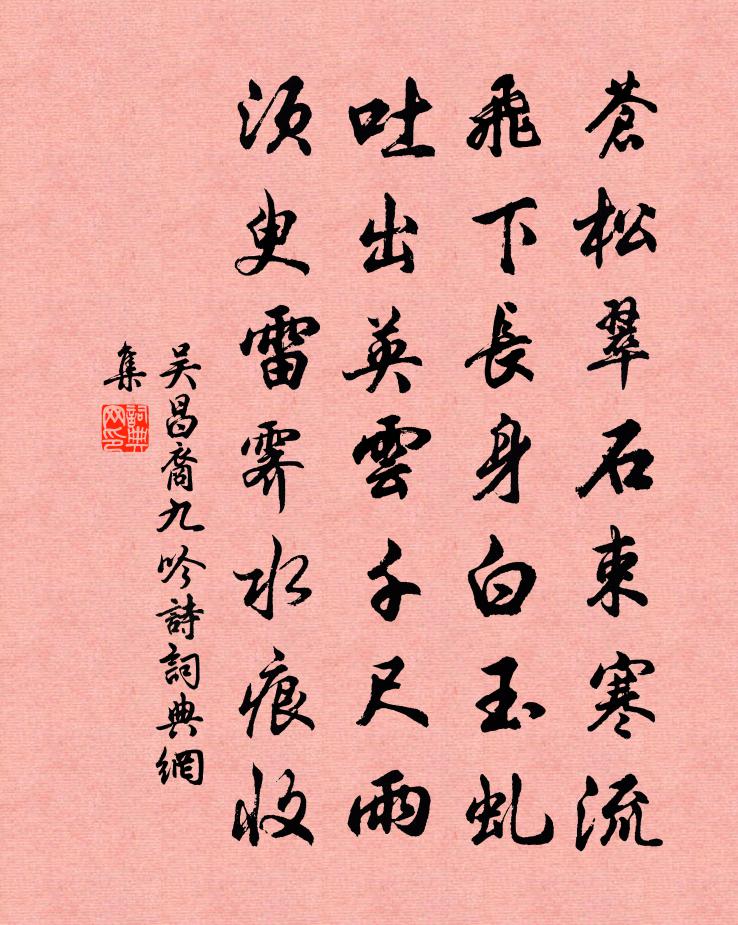 蒼松翠石束寒流
飛下長身白玉虬
吐出英雲千尺雨
須臾雷霽水痕收
吴昌裔九吟詩詞典網
集
詞典
网印